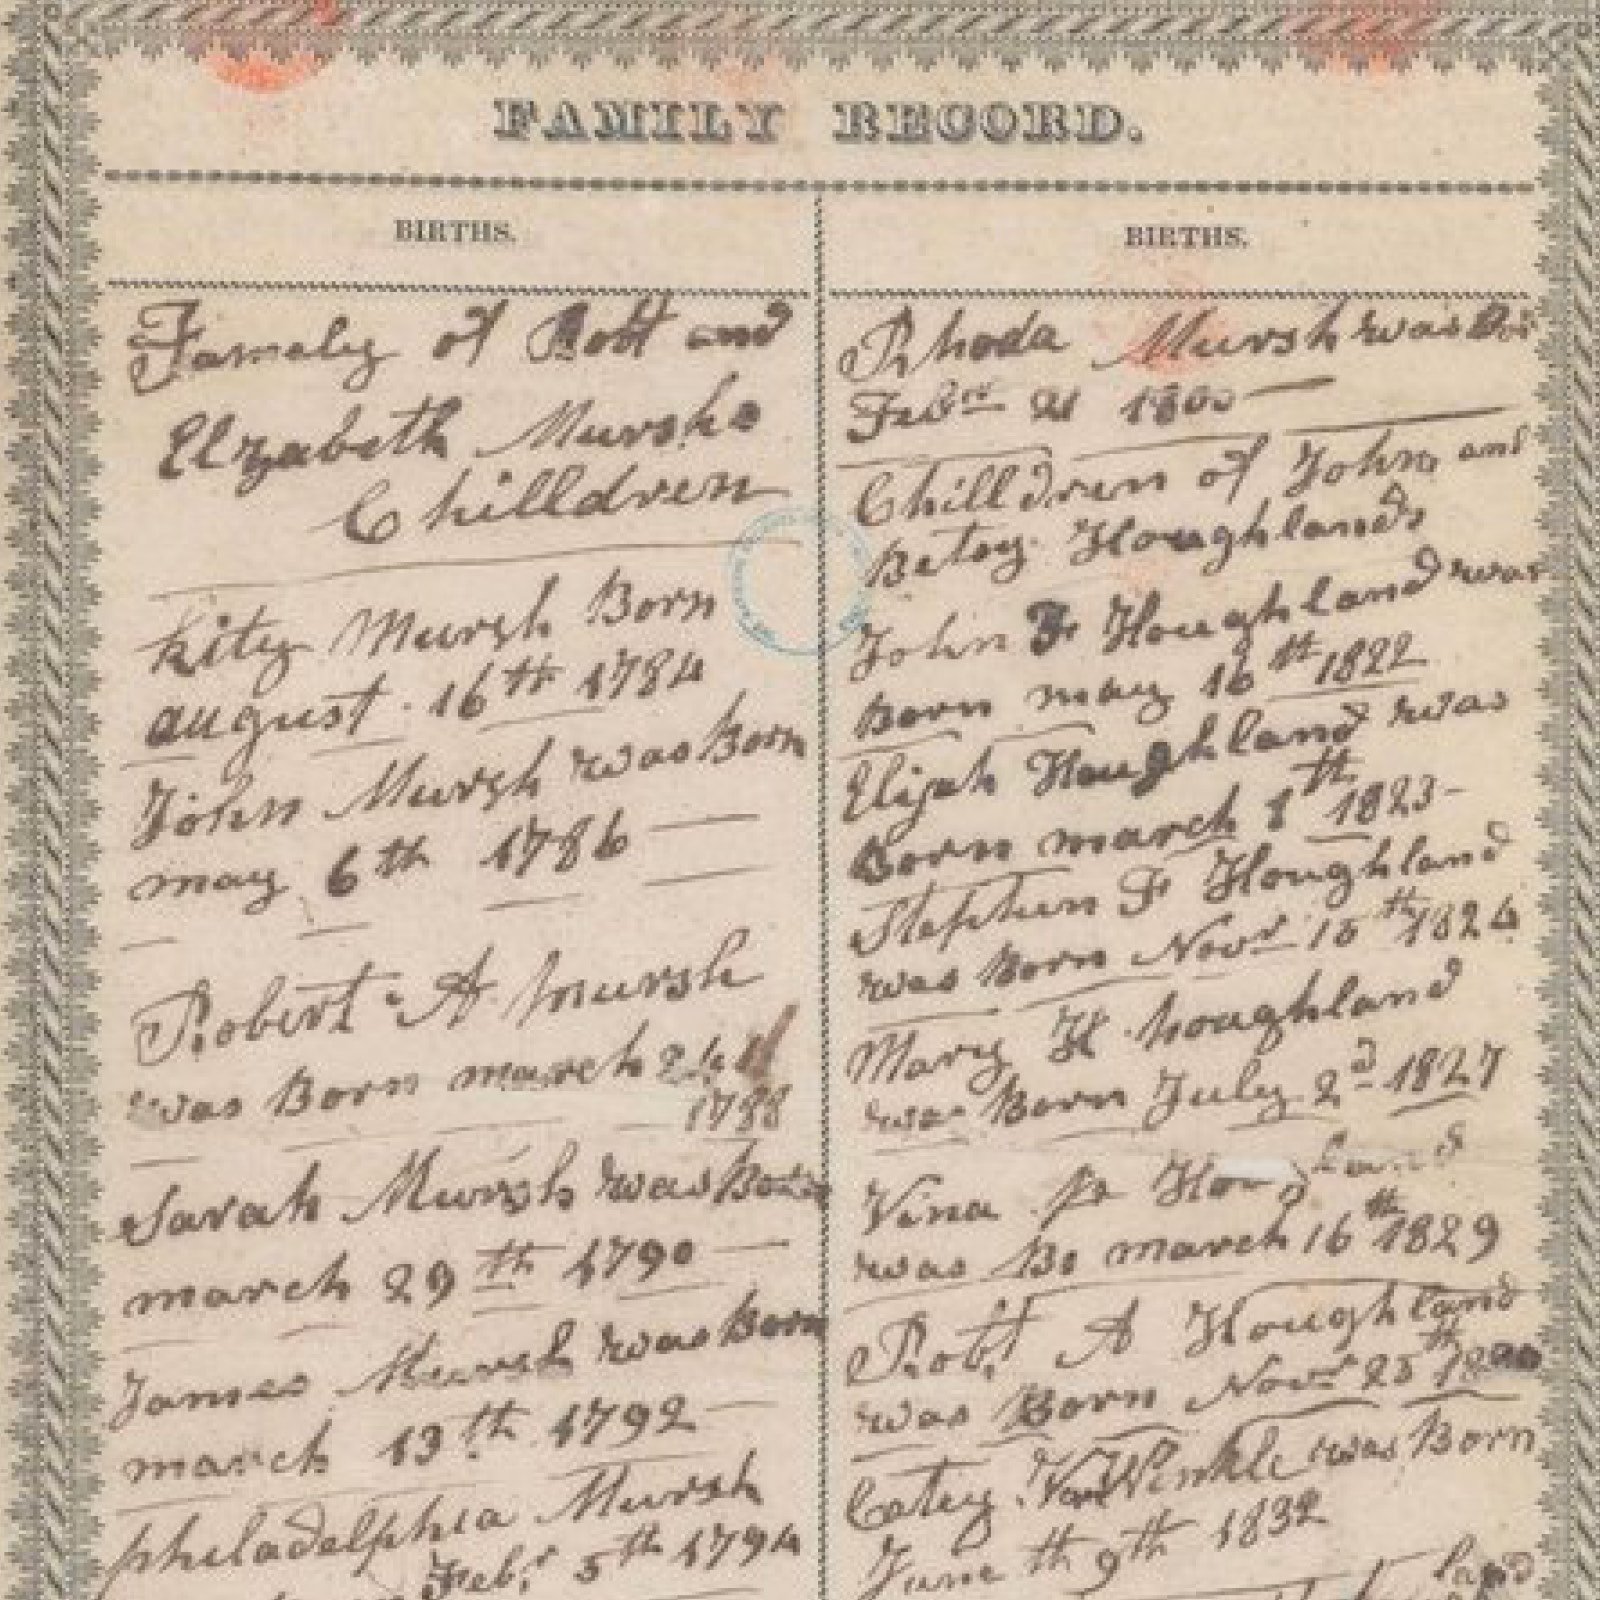 FAMILY RECORD.
BIRTHS.
Famely of Rott and
Elzabeth Mursho
Chilldren
Kity Mursh Born
august 16th 1784
John Mursh was Born
may 6th 1786
Robert A Mursh
was Born march 24
1788
Sarah Mursh was Born
march 29th 1790
James Mursh was Born
march 13th 1792
philadelphia Mursh
Febr 5th 1794
BIRTHS.
Rhoda Mursh was
Febr 21 1800
Chilldren of John and
Betsy Houghlands
John F Houghland was
Born may 16th 1822
Elijah Houghland was
Born march 8th 1823
Stephen F Houghland
was Born Novr 15th 1824
Mary H houghland
was Born July 2d 1827
Vina
was Bo march 16th 1829
Robt A Houghland
was Born Novr 25th
Catey VanWinkle was Born
June th 9th 1832
land